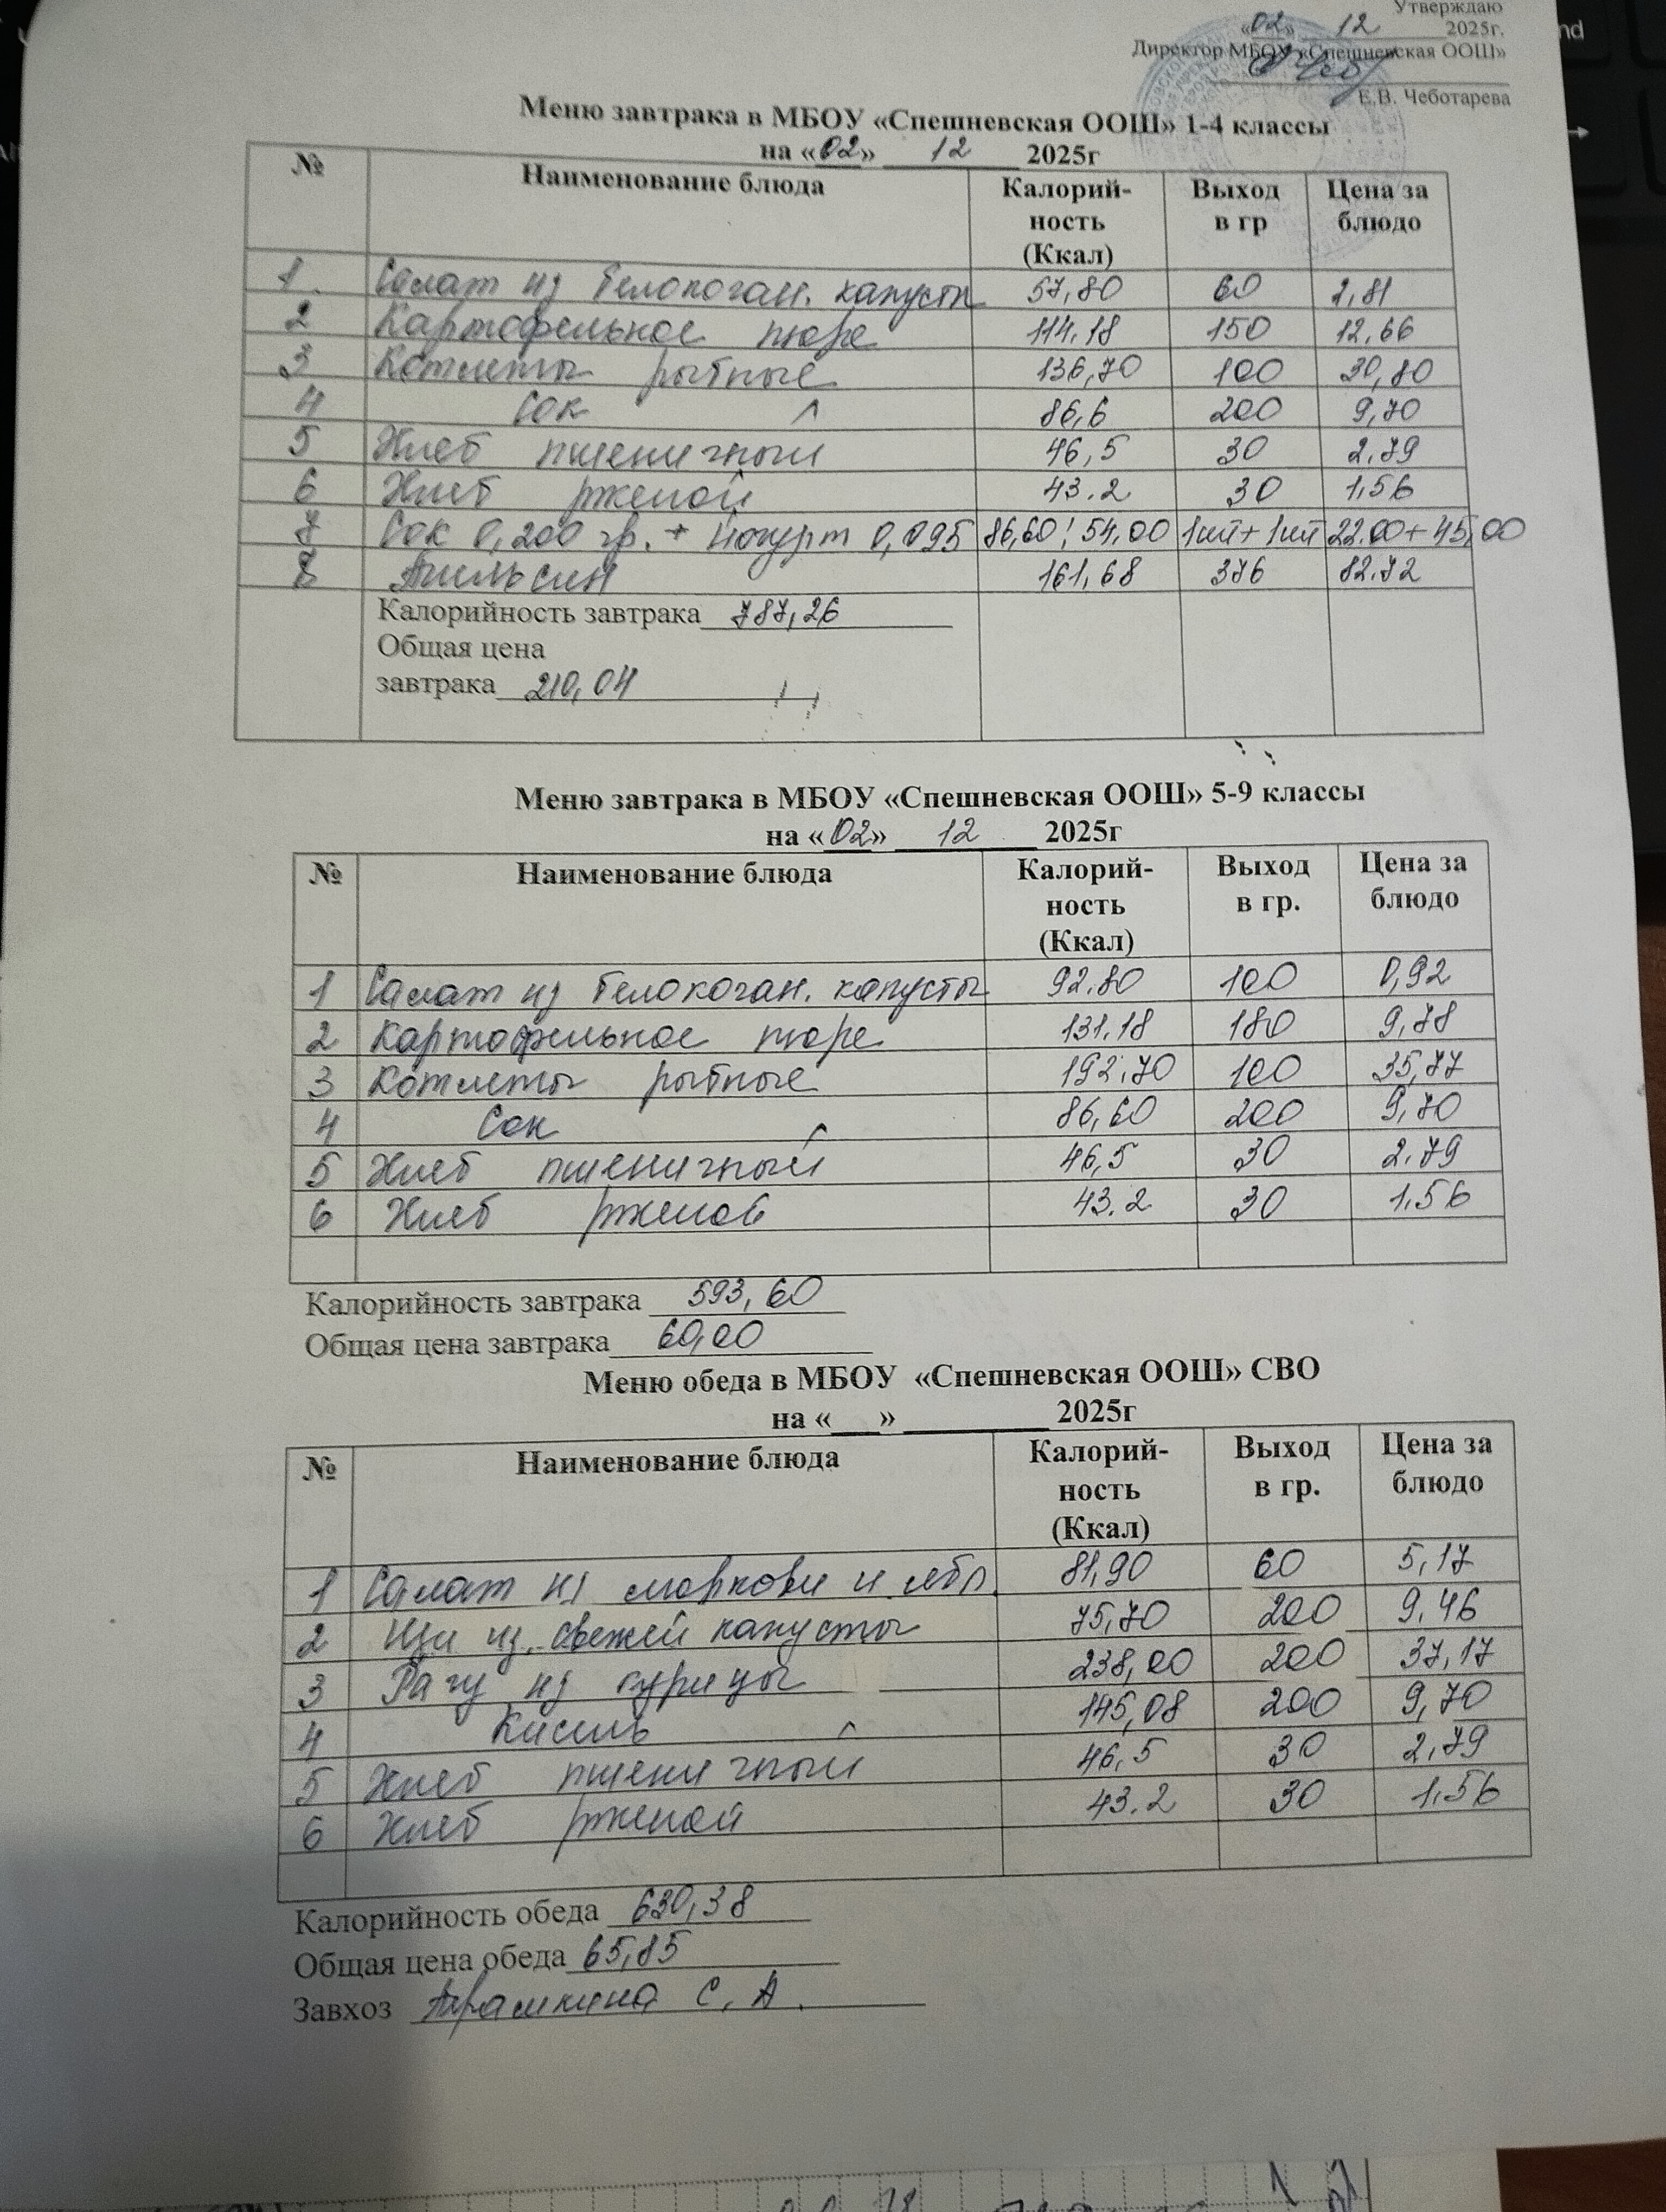 Утверждаю
«02» 12 2025г.
Директор МБОУ «Спешневская ООШ»
Е.В. Чеботарева
Меню завтрака в МБОУ «Спешневская ООШ» 1-4 классы
на «02» 12 2025г
№ Наименование блюда Калорий-ность (Ккал) Выход в гр Цена за блюдо
1. Салат из белокочан. капусты 57,80 60 2,81
2 Картофельное пюре 114,18 150 12,66
3 Котлеты рыбные 136,70 100 30,80
4 Сок 86,6 200 9,70
5 Хлеб пшеничный 46,5 30 2,79
6 Хлеб ржаной 43.2 30 1,56
7 Сок 0,200 гр. + Йогурт 0,095 86,60; 54,00 1шт+1шт 22.00+45,00
8 Апельсин 161,68 376 82.72
Калорийность завтрака 787,26
Общая цена
завтрака 210,04
Меню завтрака в МБОУ «Спешневская ООШ» 5-9 классы
на «02» 12 2025г
№ Наименование блюда Калорий-ность (Ккал) Выход в гр. Цена за блюдо
1 Салат из белокочан. капусты 92.80 100 0,92
2 Картофельное пюре 131.18 180 9,78
3 Котлеты рыбные 192,70 100 35,77
4 Сок 86,60 200 9,70
5 Хлеб пшеничный 46,5 30 2.79
6 Хлеб ржаной 43.2 30 1.56
Калорийность завтрака 593,60
Общая цена завтрака 60,00
Меню обеда в МБОУ «Спешневская ООШ» СВО
на «___» _________ 2025г
№ Наименование блюда Калорий-ность (Ккал) Выход в гр. Цена за блюдо
1 Салат из моркови и ябл. 81,90 60 5,17
2 Щи из свежей капусты 75,70 200 9,46
3 Рагу из курицы 238,00 200 37,17
4 Кисель 145,08 200 9,70
5 Хлеб пшеничный 46,5 30 2,79
6 Хлеб ржаной 43.2 30 1.56
Калорийность обеда 630,38
Общая цена обеда 65,85
Завхоз С. А.